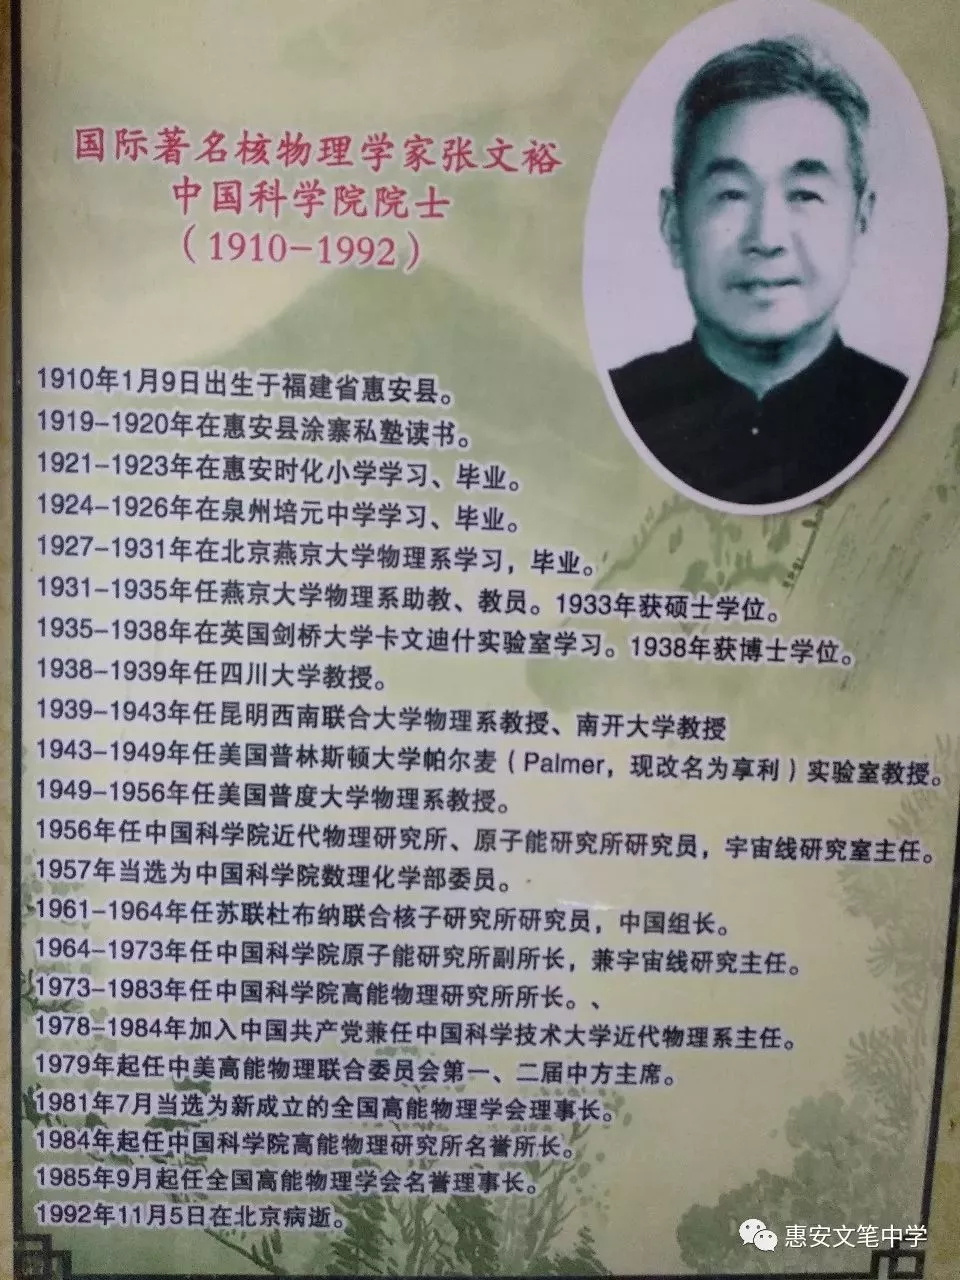 国际著名核物理学家张文裕
中国科学院院士
（1910-1992）
1910年1月9日出生于福建省惠安县。
1919-1920年在惠安县涂寨私塾读书。
1921-1923年在惠安时化小学学习、毕业。
1924-1926年在泉州培元中学学习、毕业。
1927-1931年在北京燕京大学物理系学习，毕业。
1931-1935年任燕京大学物理系助教、教员。1933年获硕士学位。
1935-1938年在英国剑桥大学卡文迪什实验室学习。1938年获博士学位。
1938-1939年任四川大学教授。
1939-1943年任昆明西南联合大学物理系教授、南开大学教授
1943-1949年任美国普林斯顿大学帕尔麦（Palmer，现改名为享利）实验室教授。
1949-1956年任美国普度大学物理系教授。
1956年任中国科学院近代物理研究所、原子能研究所研究员，宇宙线研究室主任。
1957年当选为中国科学院数理化学部委员。
1961-1964年任苏联杜布纳联合核子研究所研究员，中国组长。
1964-1973年任中国科学院原子能研究所副所长，兼宇宙线研究主任。
1973-1983年任中国科学院高能物理研究所所长。、
1978-1984年加入中国共产党兼任中国科学技术大学近代物理系主任。
1979年起任中美高能物理联合委员会第一、二届中方主席。
1981年7月当选为新成立的全国高能物理学会理事长。
1984年起任中国科学院高能物理研究所名誉所长。
1985年9月起任全国高能物理学会名誉理事长。
1992年11月5日在北京病逝。
惠安文笔中学